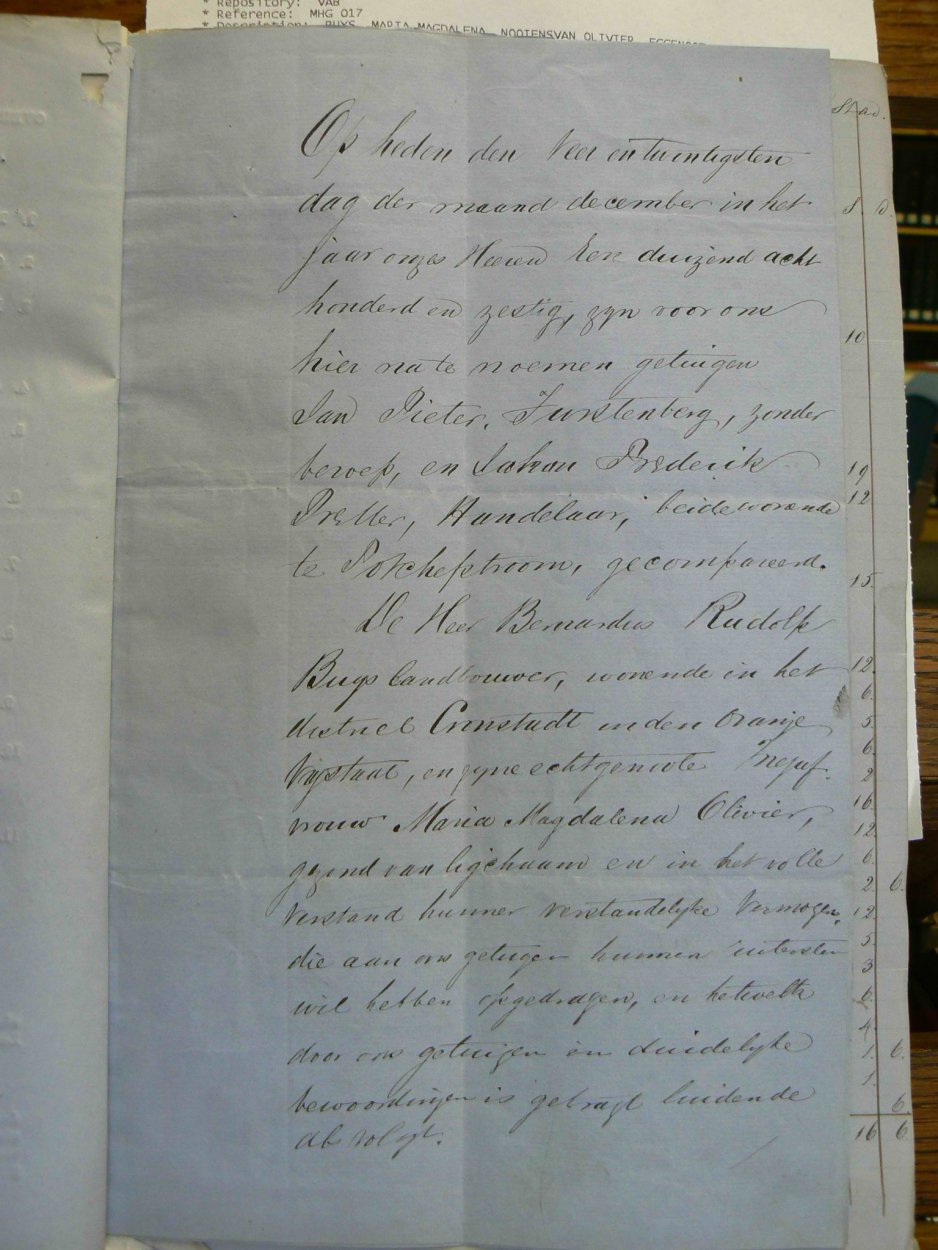 * Repository: VAB
* Reference: MHG 017
* Description: BUYS, MARIA MAGDALENA. NOOIENSVAN OLIVIER. EGGENOOT
Op heden den Vier en twintigsten
dag der maand december in het
jaar onzes Heeren Een duizend acht
honderd en zestig, zyn voor ons
hier na te noemen getuigen
Jan Pieter, Furstenberg, zonder
beroep, en Johan Frederik
Preller, Handelaar, beide wonende
te Potchefstroom, gecompareerd.
De Heer Bernardus Rudolf
Buys Landbouwer, wonende in het
district Cronstadt in den Oranje
Vrystaat, en zyne echtgenote Mejuf-
vrouw Maria Magdalena Olivier,
gezond van ligchaam en in het volle
verstand hunner verstandelyke Vermogen,
die aan ons getuigen hunnen uitersten
wil hebben opgedragen, en hetwelk
door ons getuigen in duidelyke
bewoordingen is gebragt luidende
als volgt.
8. 0.
10
19
12
15
12.
6.
5
6.
2
16.
12.
6.
2. 6.
12.
5.
3
6.
4.
1. 6.
1
6.
16 6.